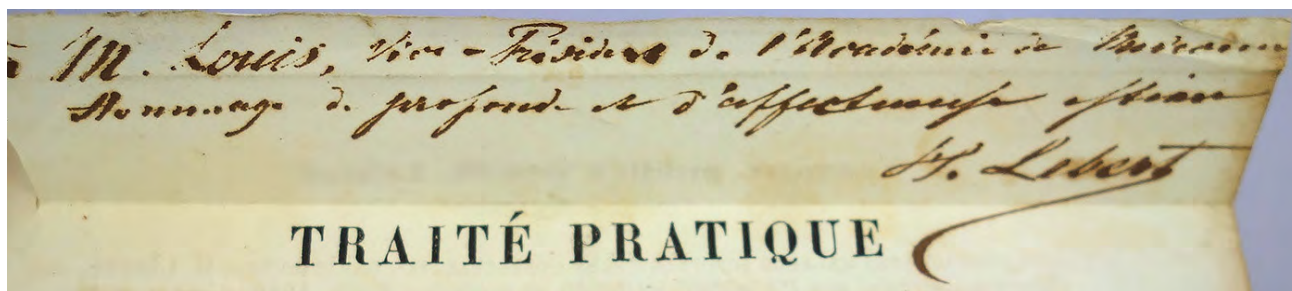 à M. Louis, Vice-Président de l'Académie de Médecine
Hommage de profonde et d'affectueuse estime
H. Lebert
TRAITÉ PRATIQUE